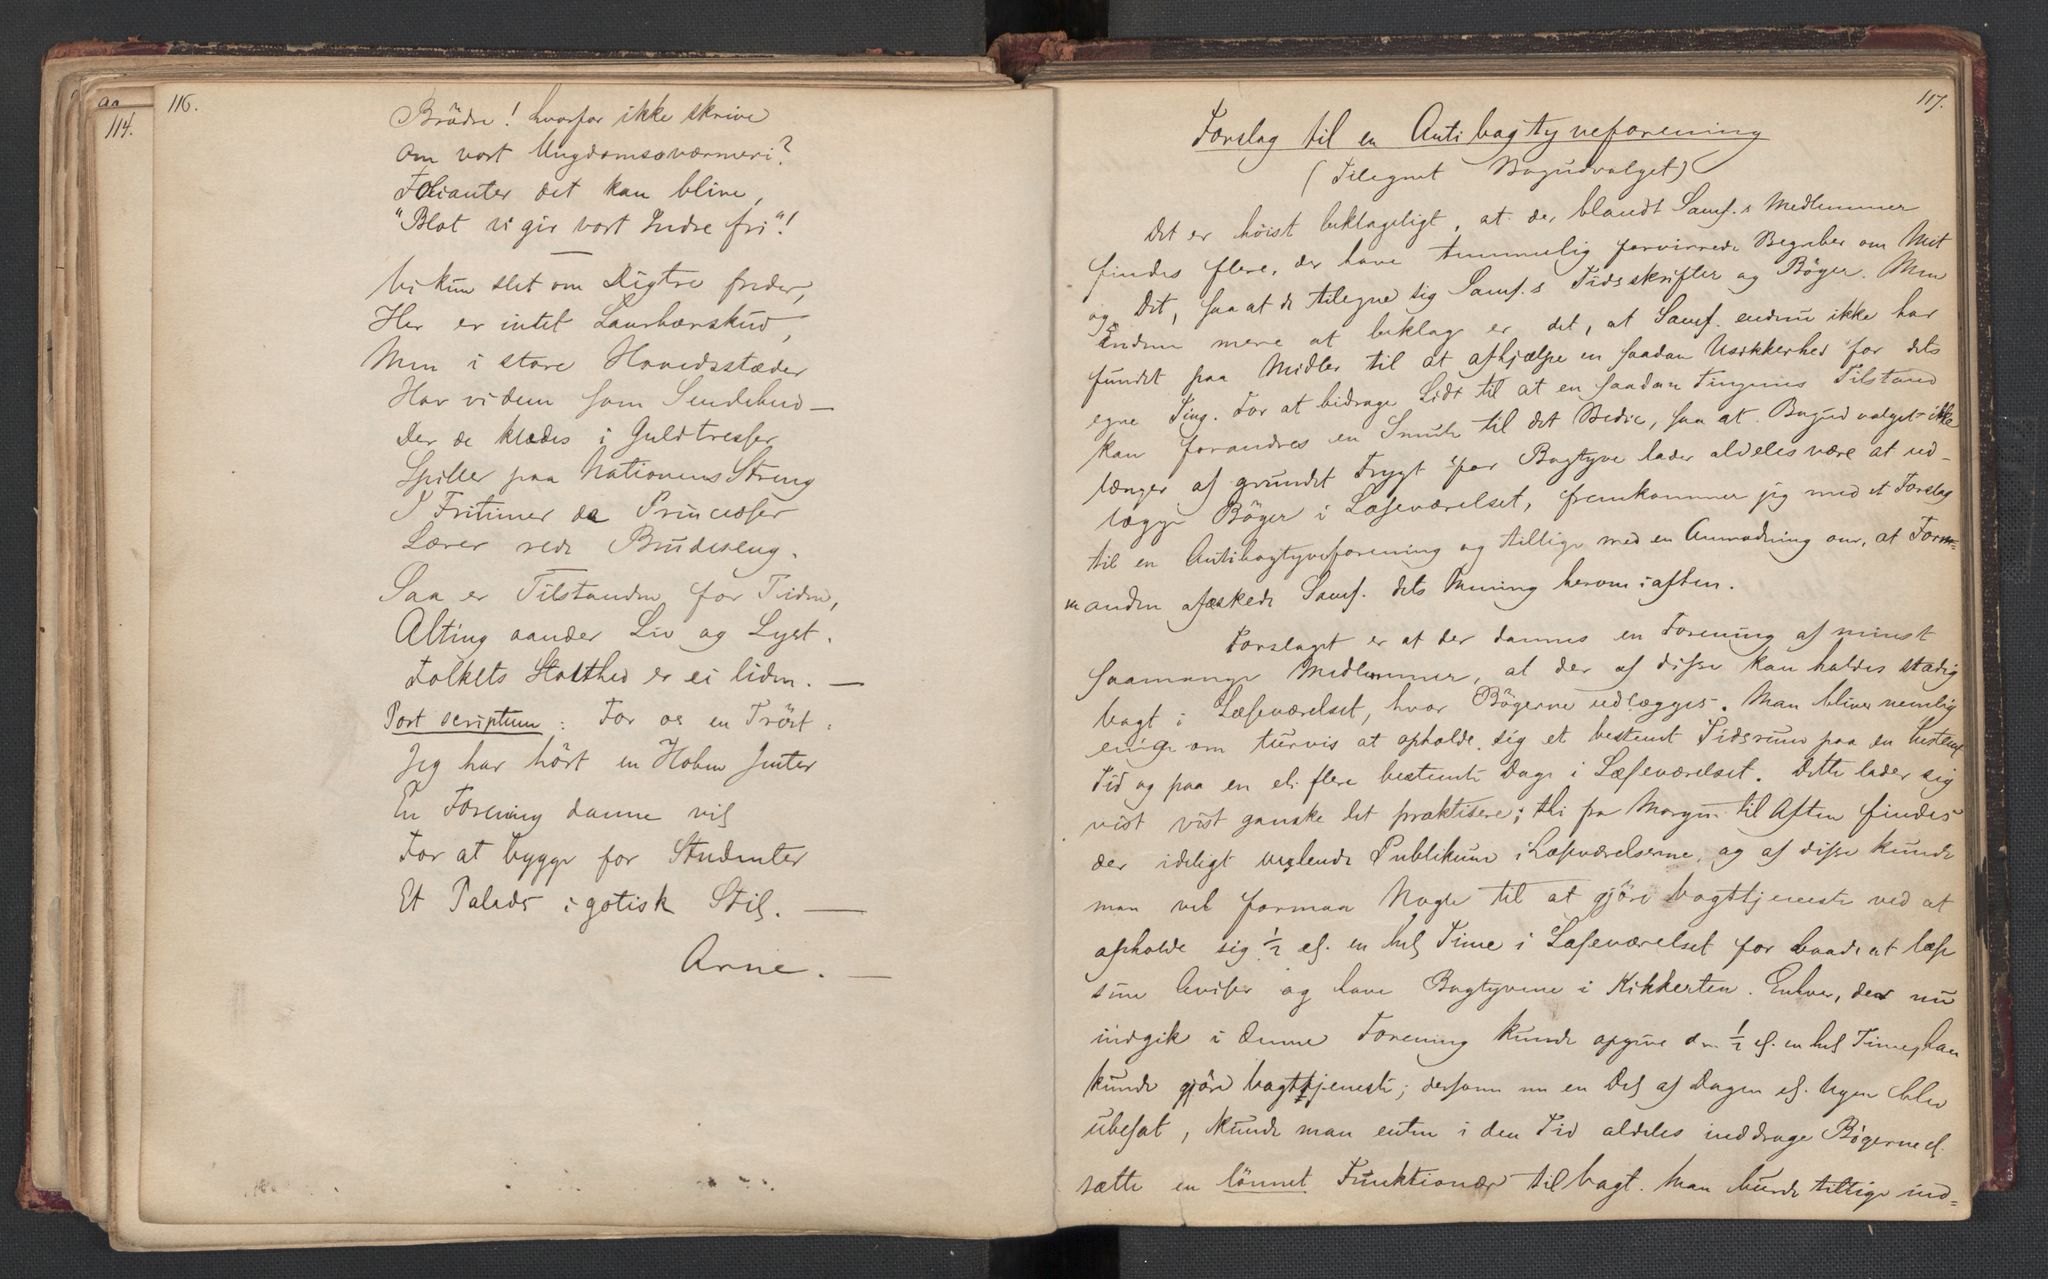 114.
116.
Brödre! hvorfor ikke skrive
Om vort Ungdomssværmeri?
Folianter det kan blive,
"Blot vi gir vort Indre fri"!
Vi kun slet om Digtre freder,
Her er intet Laurbærskud,
Men i store Hovedsstæder
Har vi dem som Sendebud —
Der de klædes i Guldtresser
Spiller paa Nationens Streng
I Fritimer de Princesser
Lærer rede Brudeseng.
Saa er Tilstanden for Tiden,
Alting aander Liv og Lyst.
Folkets Stolthed er ei liden. —
Post scriptum: For os en Tröst:
Jeg har hört en Hoben Jenter
En Forening danne vil
For at bygge for Studenter
Et Palads i gotisk Stil. —
Arne. —
117.
Forslag til en Antibogtyveforening
(Tilegnet Bogudvalget)
Det er höist beklageligt, at der blandt Samf.s Medlemmer
findes flere, der have temmelig forvirrede Begreber om Mit
og Dit, saa at de tilegne sig Samf.s Tidsskrifter og Böger. Men
endnu mere at beklage er det, at Samf. endnu ikke har
fundet paa Midler til at afhjælpe en saadan Usikkerhed for dets
egne Ting. For at bidrage Lidt til at en saadan Tingenes Tilstand
kan forandres en Smule til det Bedre, saa at Bogudvalget ikke
længer af grundet Frygt for Bogtyve lader aldeles være at ud-
lægge Böger i Læseværelset, fremkommer jeg med et Forslag
til en Antibogtyveforening og tillige med en Anmodning om, at Form-
manden afæskede Samf. dets Mening herom iaften.
Forslaget er at der dannes en Forening af mindst
saamange Medlemmer, at der af disse kan holdes stadig
vagt i Læseværelset, hvor Bögerne udlægges. Man bliver nemlig
enige om turvis at opholde sig et bestemt Tidsrum paa en bestemt
Tid og paa en el. flere bestemte Dage i Læseværelset. Dette lader sig
vist vist ganske let praktisere; thi fra Morgen til Aften findes
der ideligt vexlende Publikum i Læseværelserne, og af disse kunde
man vel formaa Nogle til at gjöre vagttjeneste ved at
opholde sig ½ el. en hel Time i Læseværelset for baade at læse
sine Aviser og have Bogtyvene i Kikkerten. Enhver, der nu
indgik i denne Forening kunde opgive den ½ el. en hel Time, han
kunde gjöre vagttjeneste; dersom nu en Del af Dagen el. Ugen blev
ubesat, kunde man enten i den Tid aldeles inddrage Bögerne el.
sætte en lönnet Funktionær til vagt. Man burde tillige ind-